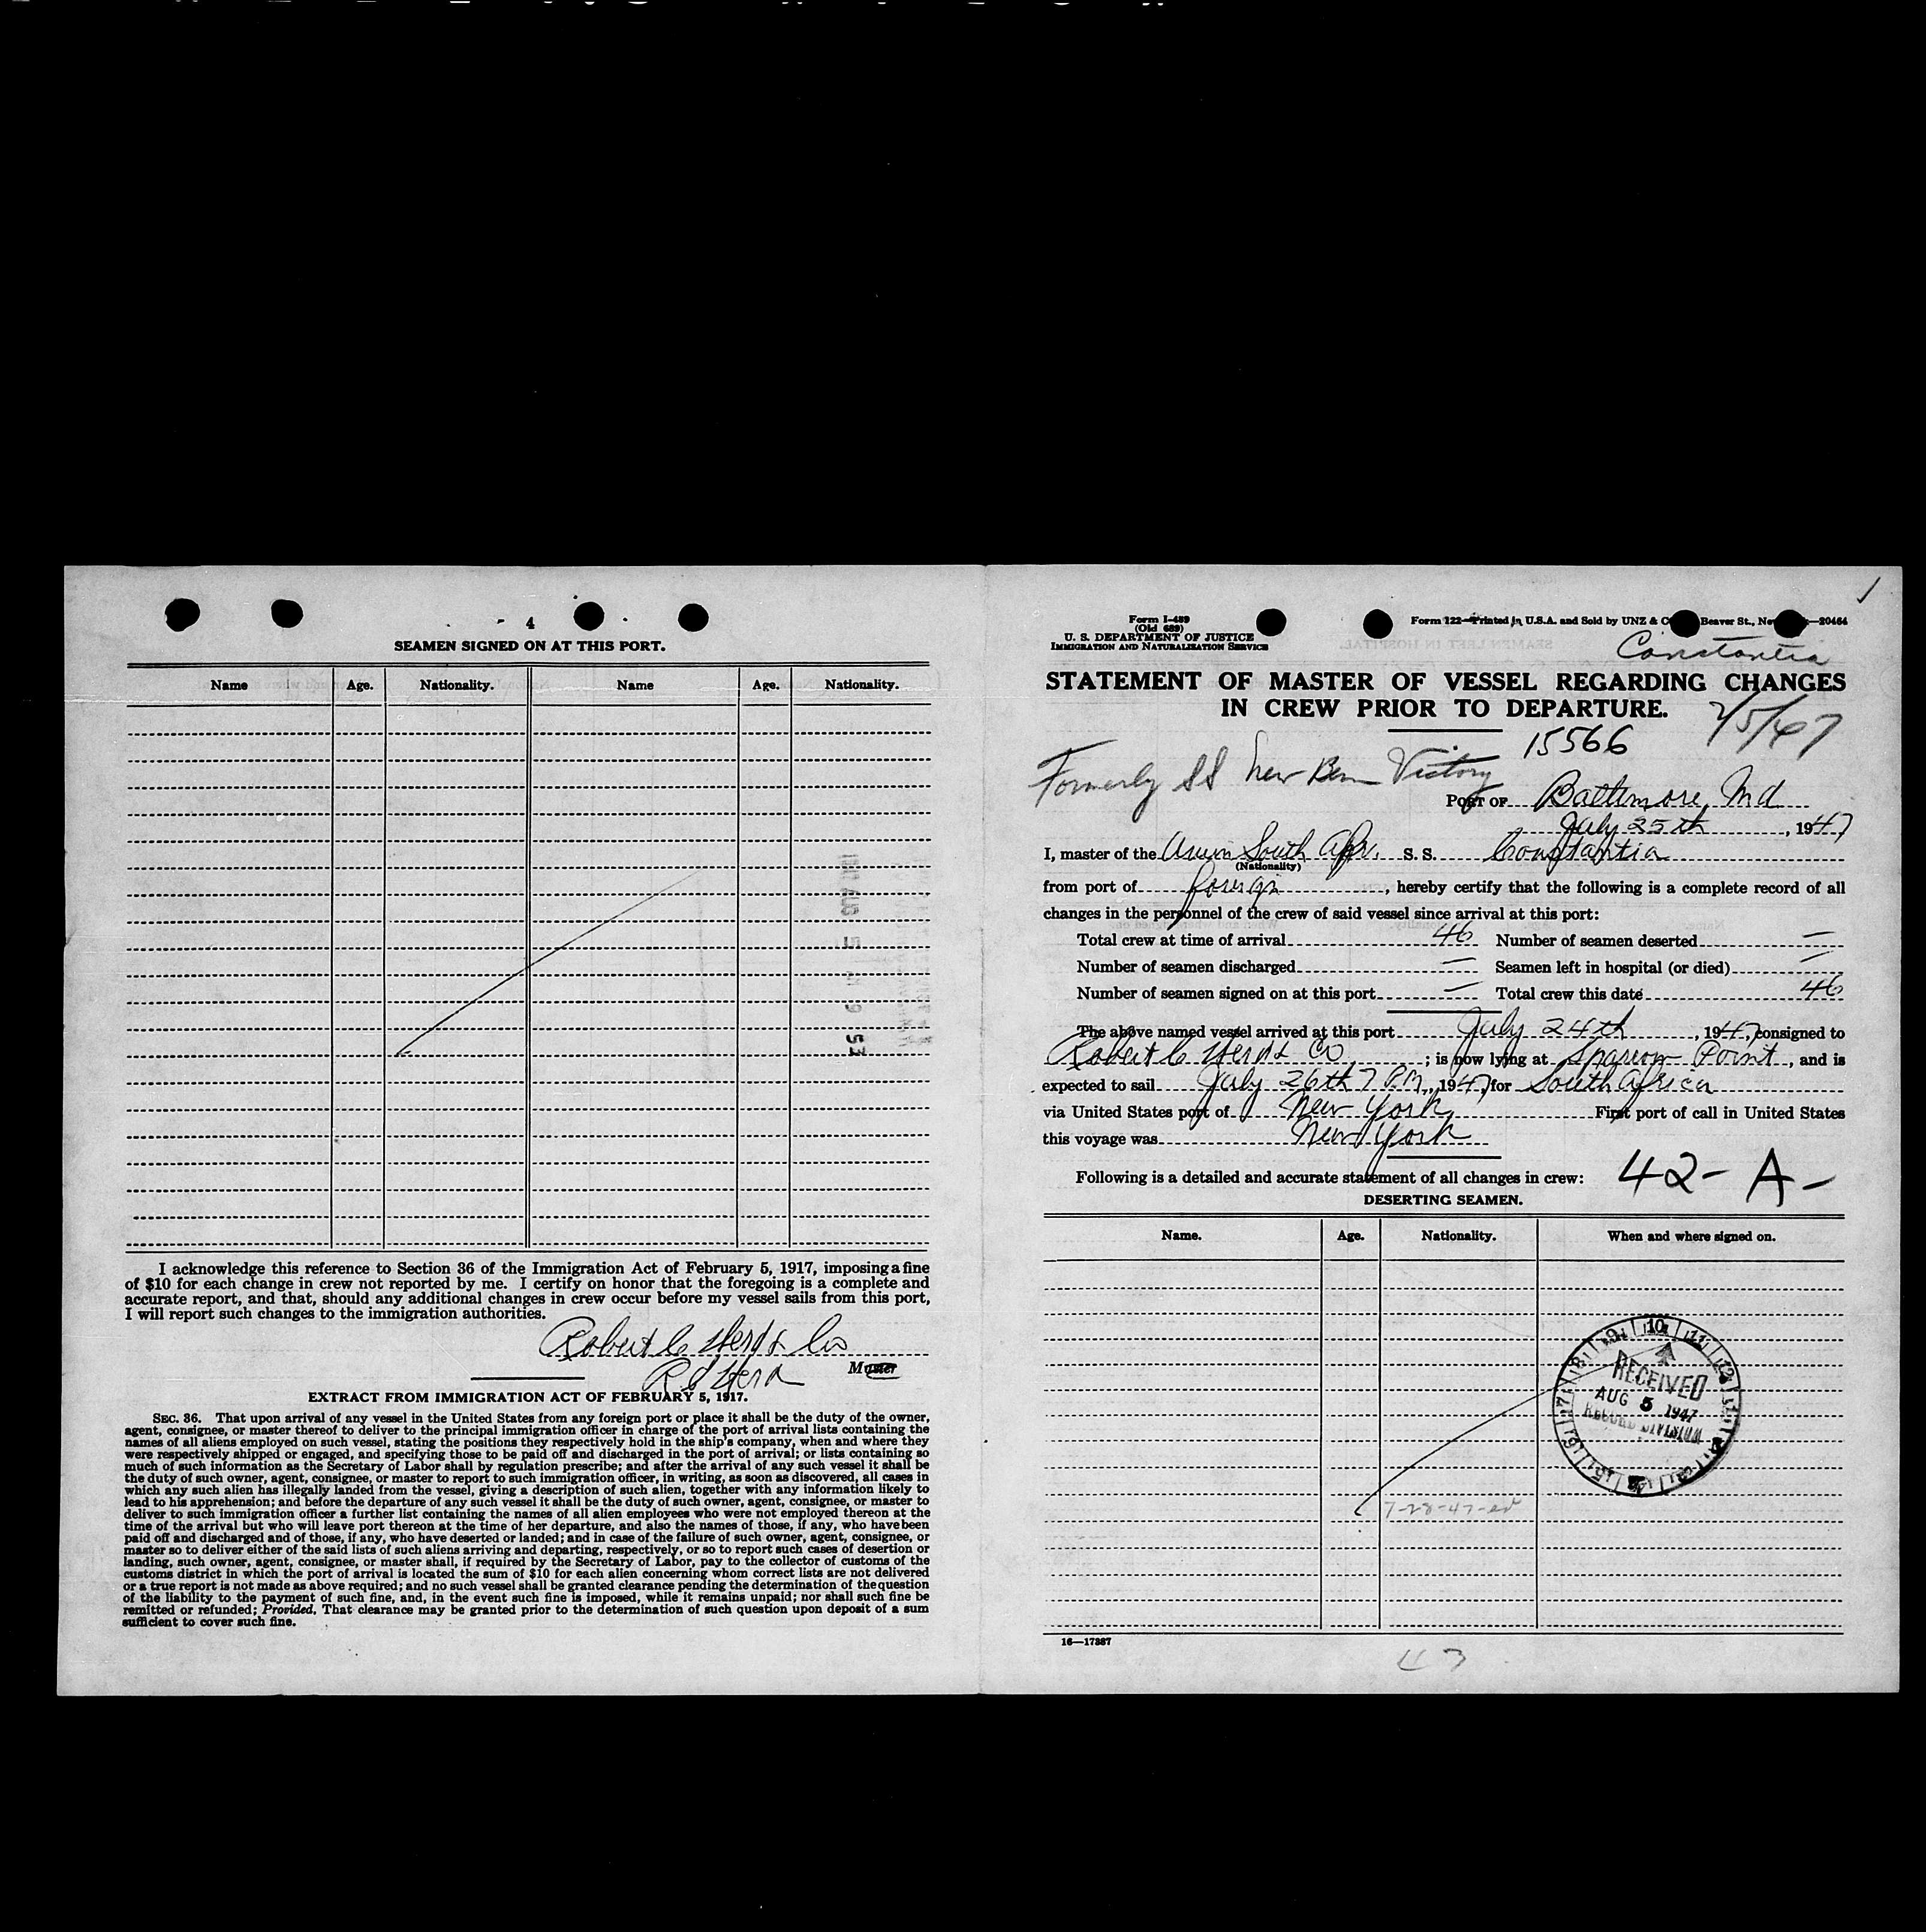 4
SEAMEN SIGNED ON AT THIS PORT.
Name Age. Nationality. Name Age. Nationality.
1947 AUG 5 AM 9 53
I acknowledge this reference to Section 36 of the Immigration Act of February 5, 1917, imposing a fine
of $10 for each change in crew not reported by me. I certify on honor that the foregoing is a complete and
accurate report, and that, should any additional changes in crew occur before my vessel sails from this port,
I will report such changes to the immigration authorities.
Robert C Herd & Co
Master
EXTRACT FROM IMMIGRATION ACT OF FEBRUARY 5, 1917.
SEC. 36. That upon arrival of any vessel in the United States from any foreign port or place it shall be the duty of the owner,
agent, consignee, or master thereof to deliver to the principal immigration officer in charge of the port of arrival lists containing the
names of all aliens employed on such vessel, stating the positions they respectively hold in the ship's company, when and where they
were respectively shipped or engaged, and specifying those to be paid off and discharged in the port of arrival; or lists containing so
much of such information as the Secretary of Labor shall by regulation prescribe; and after the arrival of any such vessel it shall be
the duty of such owner, agent, consignee, or master to report to such immigration officer, in writing, as soon as discovered, all cases in
which any such alien has illegally landed from the vessel, giving a description of such alien, together with any information likely to
lead to his apprehension; and before the departure of any such vessel it shall be the duty of such owner, agent, consignee, or master to
deliver to such immigration officer a further list containing the names of all alien employees who were not employed thereon at the
time of the arrival but who will leave port thereon at the time of her departure, and also the names of those, if any, who have been
paid off and discharged and of those, if any, who have deserted or landed; and in case of the failure of such owner, agent, consignee, or
master so to deliver either of the said lists of such aliens arriving and departing, respectively, or so to report such cases of desertion or
landing, such owner, agent, consignee, or master shall, if required by the Secretary of Labor, pay to the collector of customs of the
customs district in which the port of arrival is located the sum of $10 for each alien concerning whom correct lists are not delivered
or a true report is not made as above required; and no such vessel shall be granted clearance pending the determination of the question
of the liability to the payment of such fine, and, in the event such fine is imposed, while it remains unpaid; nor shall such fine be
remitted or refunded; Provided, That clearance may be granted prior to the determination of such question upon deposit of a sum
sufficient to cover such fine.
Form I-489
(Old 689)
U. S. DEPARTMENT OF JUSTICE
IMMIGRATION AND NATURALIZATION SERVICE
Form 122—Printed in U.S.A. and Sold by UNZ & C Beaver St., Ne —20464
Constantia
STATEMENT OF MASTER OF VESSEL REGARDING CHANGES
IN CREW PRIOR TO DEPARTURE.
15566
Formerly SS New Bern Victory
PORT OF Baltimore, Md
July 25th, 1947
I, master of the South Afr. S. S. Constantia
(Nationality)
from port of foreign, hereby certify that the following is a complete record of all
changes in the personnel of the crew of said vessel since arrival at this port:
Total crew at time of arrival 46 Number of seamen deserted —
Number of seamen discharged — Seamen left in hospital (or died) —
Number of seamen signed on at this port — Total crew this date 46
The above named vessel arrived at this port July 24th, 1947, consigned to
Robert C Herd & Co; is now lying at Sparrow Point, and is
expected to sail July 26th 7 P.M., 1947, for South Africa
via United States port of New York First port of call in United States
this voyage was New York
Following is a detailed and accurate statement of all changes in crew: 42-A-
DESERTING SEAMEN.
Name. Age. Nationality. When and where signed on.
RECEIVED
AUG 5 1947
RECORD DIVISION
16—17887
47